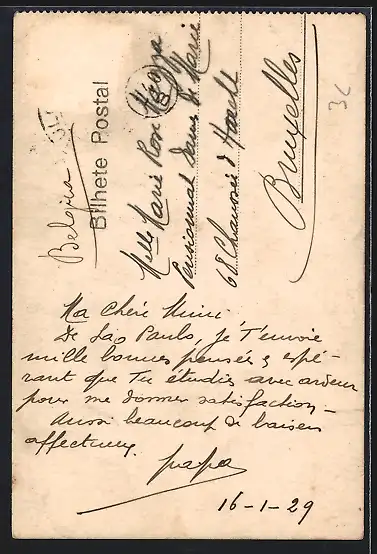 Bilhete Postal
Belgica
Melle Marie Rose
Pensionnat Dames de Marie
68 Chaussée d' Haecht
Bruxelles
3C
Ma Chère Mimi
De Sao Paulo, je t'envoie
mille bonnes pensées espé-
rant que Tu étudies avec ardeur
pour me donner satisfaction -
Aussi beaucoup de baisers
affectueux.
papa
16-1-29